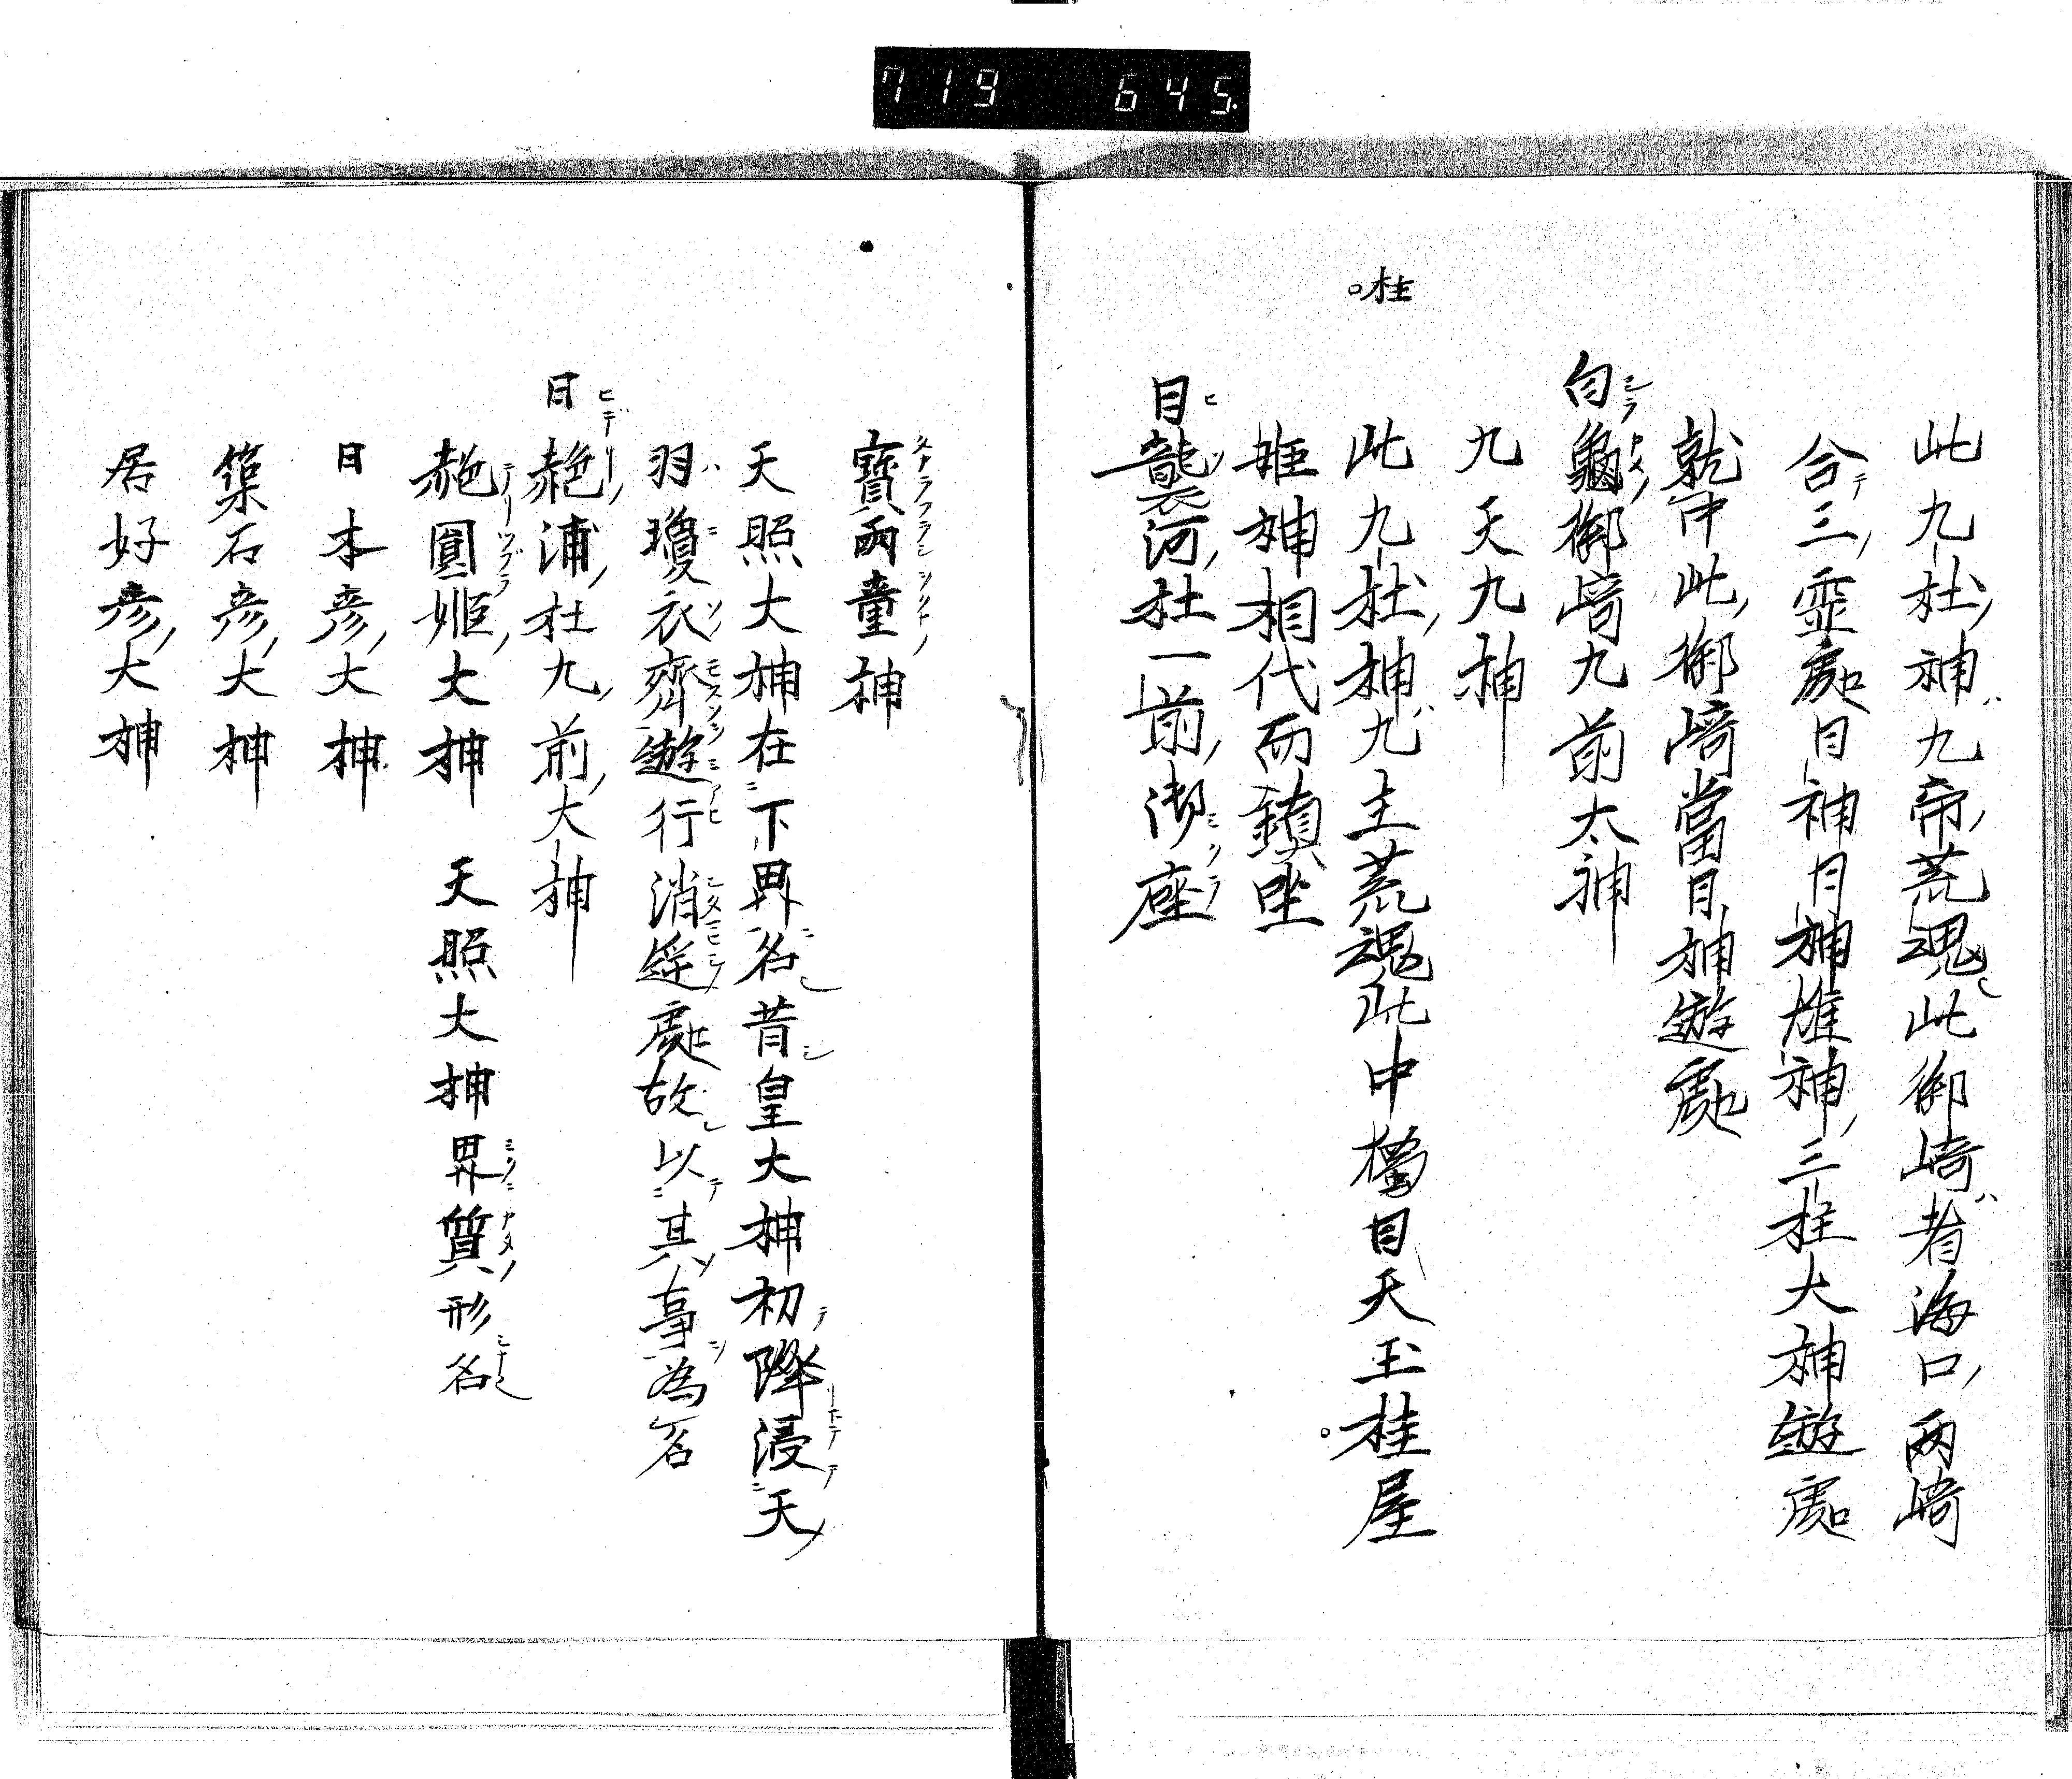 719 645.
此九社ノ神ハ九帝ノ荒魂也此御崎者ハ海口ノ両崎
合テ三ノ霊處日神月神雄神ノ三柱大神遊處
就中此ノ御崎當日神遊處
白龜御崎九前太神
九天九神
此九社ノ神九主荒魂此中獨日天玉桂屋
柱
姫神相代而鎮坐
日龍襲河ノ社一前ノ御座
寶両童神
天照大神在下界名昔皇大神初降浸天
羽瓊衣齊遊行消婬處故以其事為名
日赩浦ノ社九ノ前ノ大神
赩圓姫ノ大神 天照大神界質形名
日本彦ノ大神
築石彦ノ大神
居好彦ノ大神